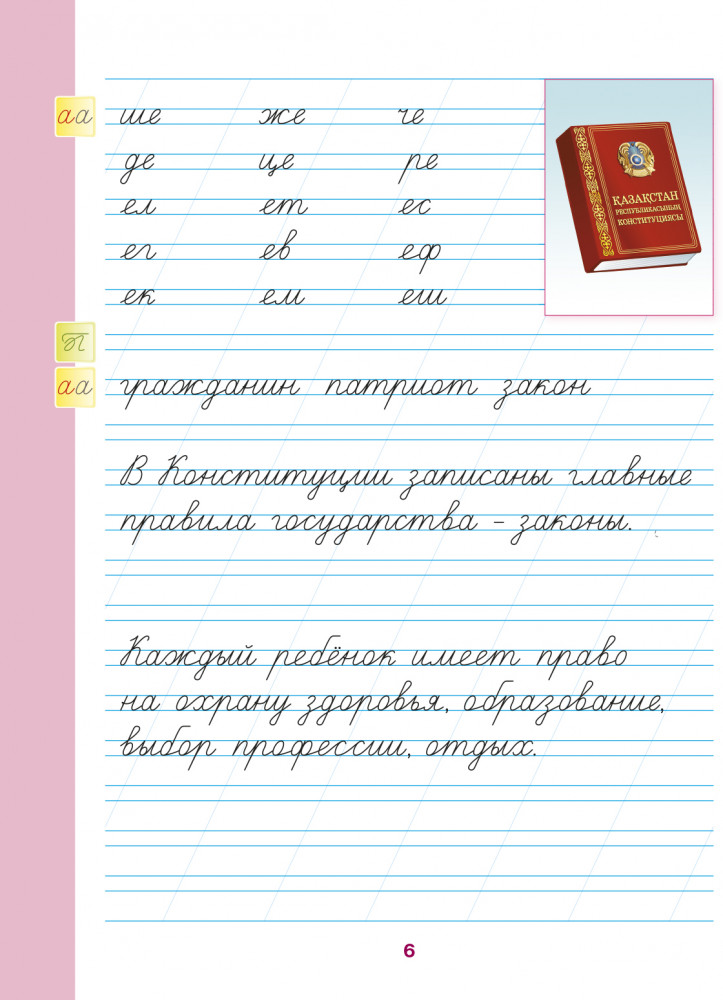 аа ше же че
де це ре
ел ет ес
ег ев еф
ек ем еш
ҚАЗАҚСТАН
РЕСПУБЛИКАСЫНЫҢ
КОНСТИТУЦИЯСЫ
П
аа гражданин патриот закон
В Конституции записаны главные
правила государства - законы.
Каждый ребёнок имеет право
на охрану здоровья, образование,
выбор профессии, отдых.
6